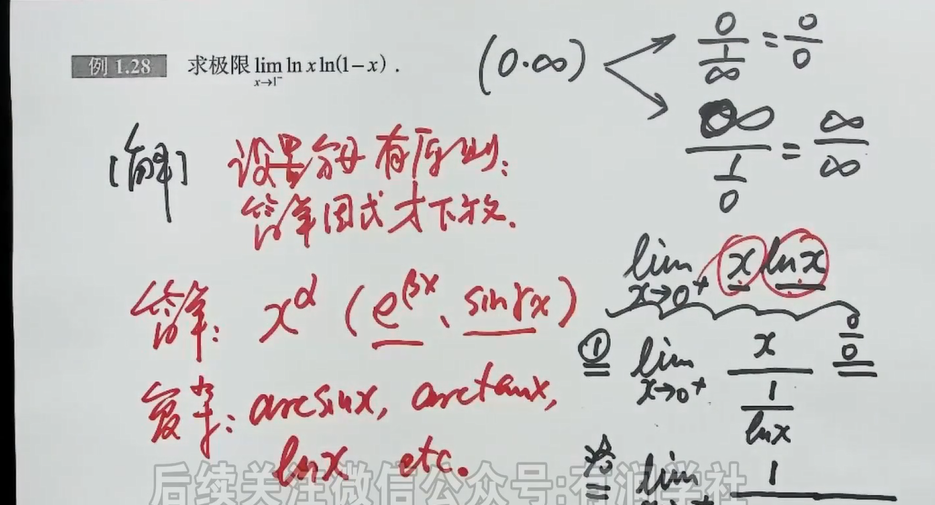 例 1.28 求极限 lim ln x ln(1-x) .
x→1⁻
(0·∞)
0/(1/∞) = 0/0
∞/(1/0) = ∞/∞
[解] 设置分母有原则:
简单因式才下放.
简单: x^α (e^{βx}、sinγx)
复杂: arcsinx, arctanx,
lnx etc.
lim x lnx
x→0⁺
① = lim x/(1/lnx) 0/0 =
x→0⁺
= lim 1
后续关注微信公众号:有润学社